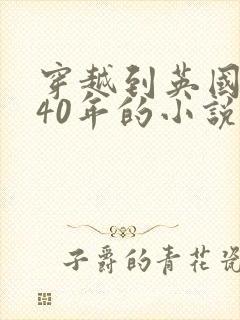 穿越到英国
40年的小说
子爵的青花瓷